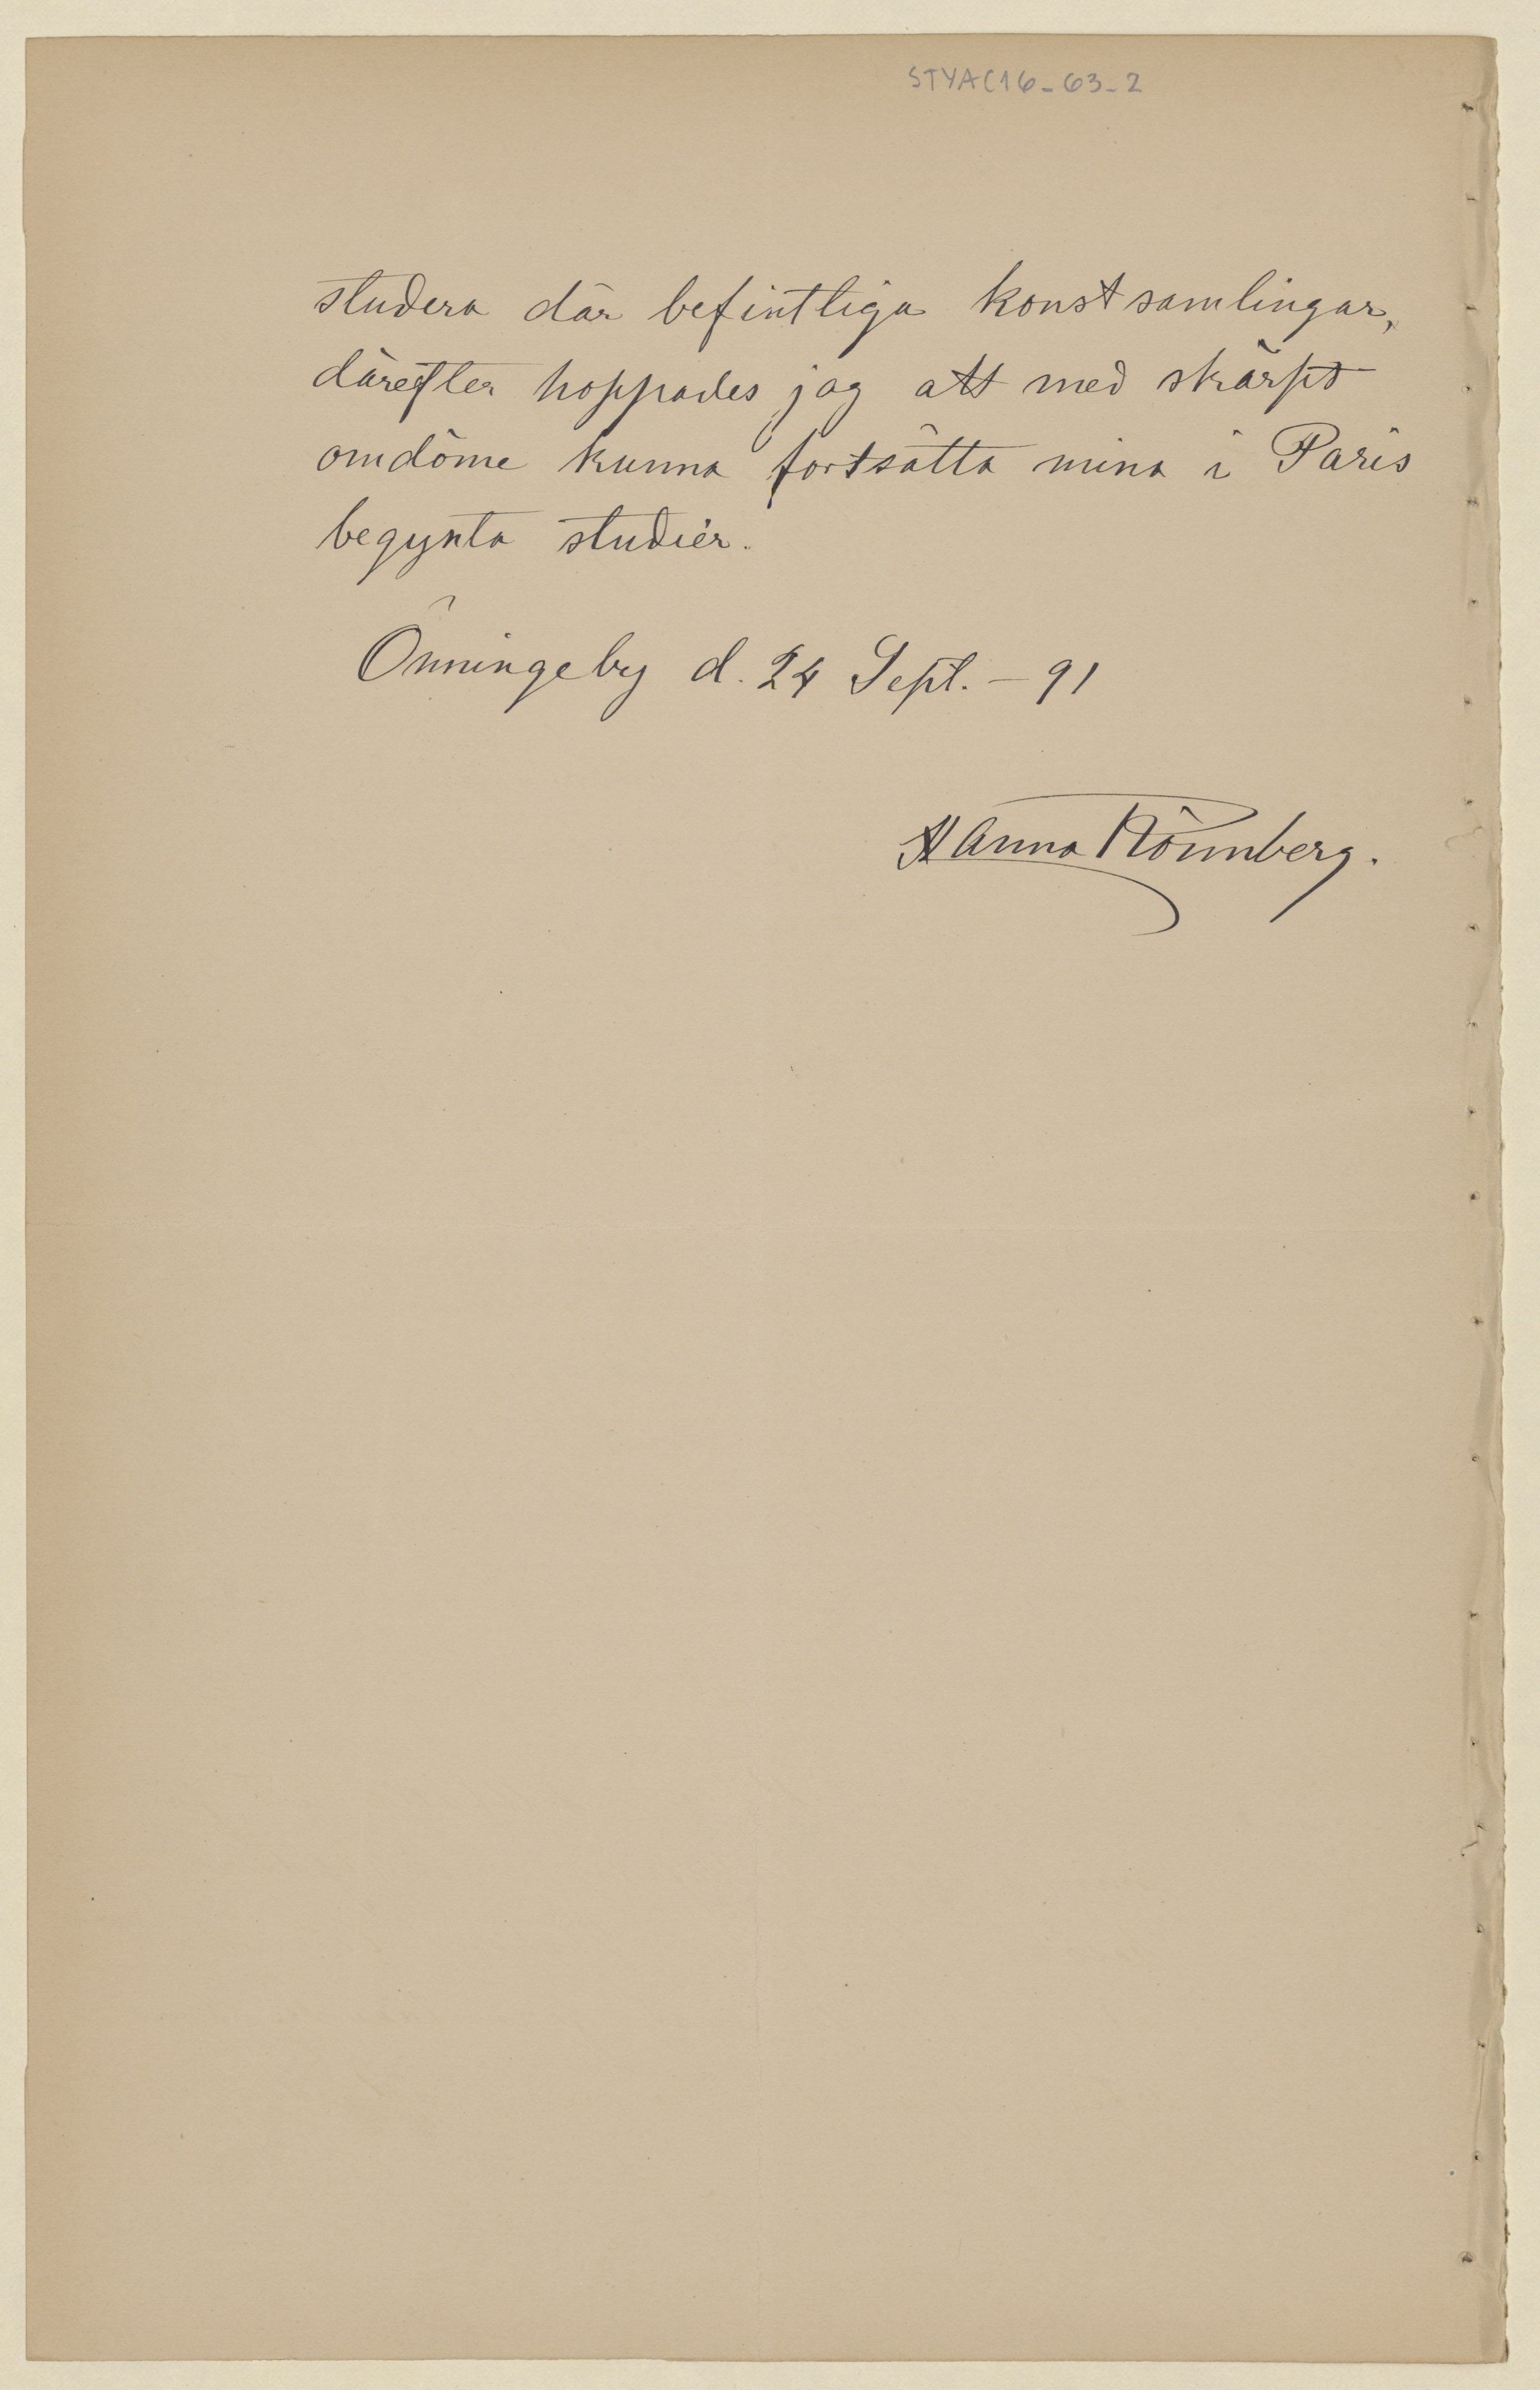 STYAC16-63-2
studera där befintliga konstsamlingar,
därefter hoppades jag att med skärpt
omdöme kunna fortsätta mina i Paris
begynta studier.
Önningeby d. 24 Sept. – 91
Hanna Rönnberg.